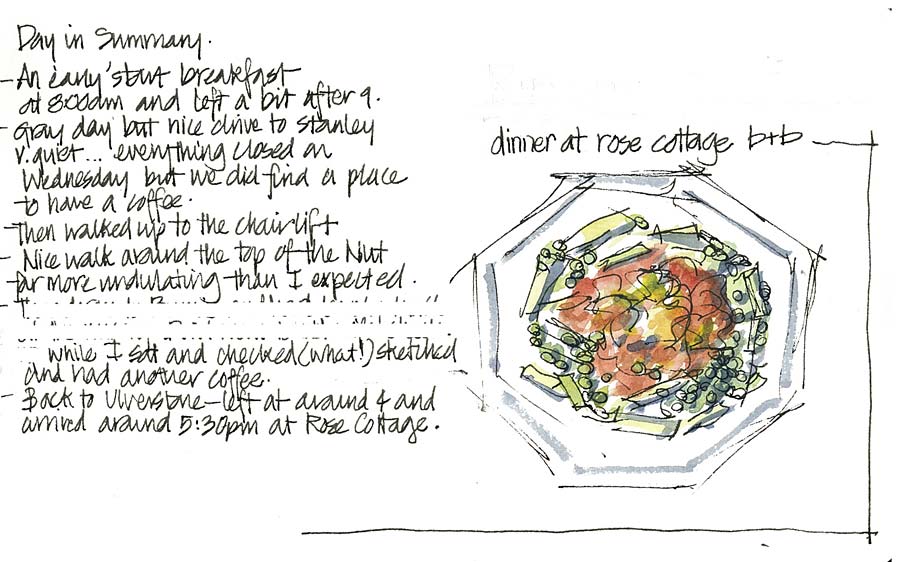 Day in Summary.
- An early start breakfast
at 8:00am and left a bit after 9.
- Gray day but nice drive to Stanley
v. quiet... everything closed on
Wednesday but we did find a place
to have a coffee.
- Then walked up to the chairlift
- Nice walk around the top of the Nut
far more undulating than I expected.
while I sat and checked (what!) sketched
and had another coffee.
- Back to Ulverstone - left at around 4 and
arrived around 5:30pm at Rose Cottage.
dinner at rose cottage b+b